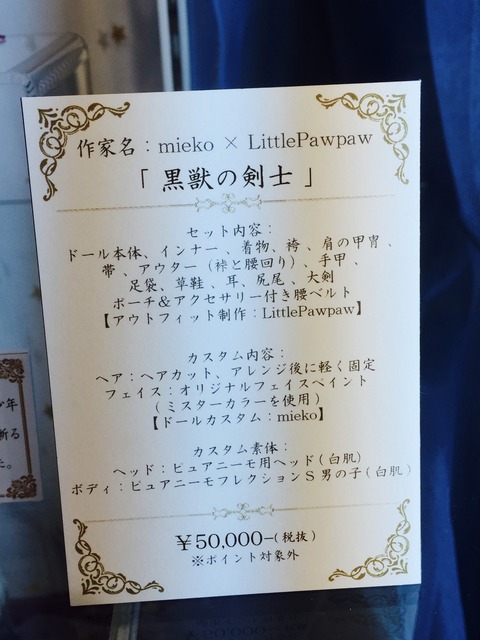 作家名：mieko × LittlePawpaw
「 黒獣の剣士 」
セット内容：
ドール本体、インナー、着物、袴、肩の甲冑、
帯、アウター（裃と腰回り）、手甲、
足袋、草鞋、耳、尻尾、大剣
ポーチ＆アクセサリー付き腰ベルト
【アウトフィット制作：LittlePawpaw】
カスタム内容：
ヘア：ヘアカット、アレンジ後に軽く固定
フェイス：オリジナルフェイスペイント
（ミスターカラーを使用）
【ドールカスタム：mieko】
カスタム素体：
ヘッド：ピュアニーモ用ヘッド(白肌)
ボディ：ピュアニーモフレクションS 男の子(白肌)
￥50,000-(税抜)
※ポイント対象外
年
斬る
た。